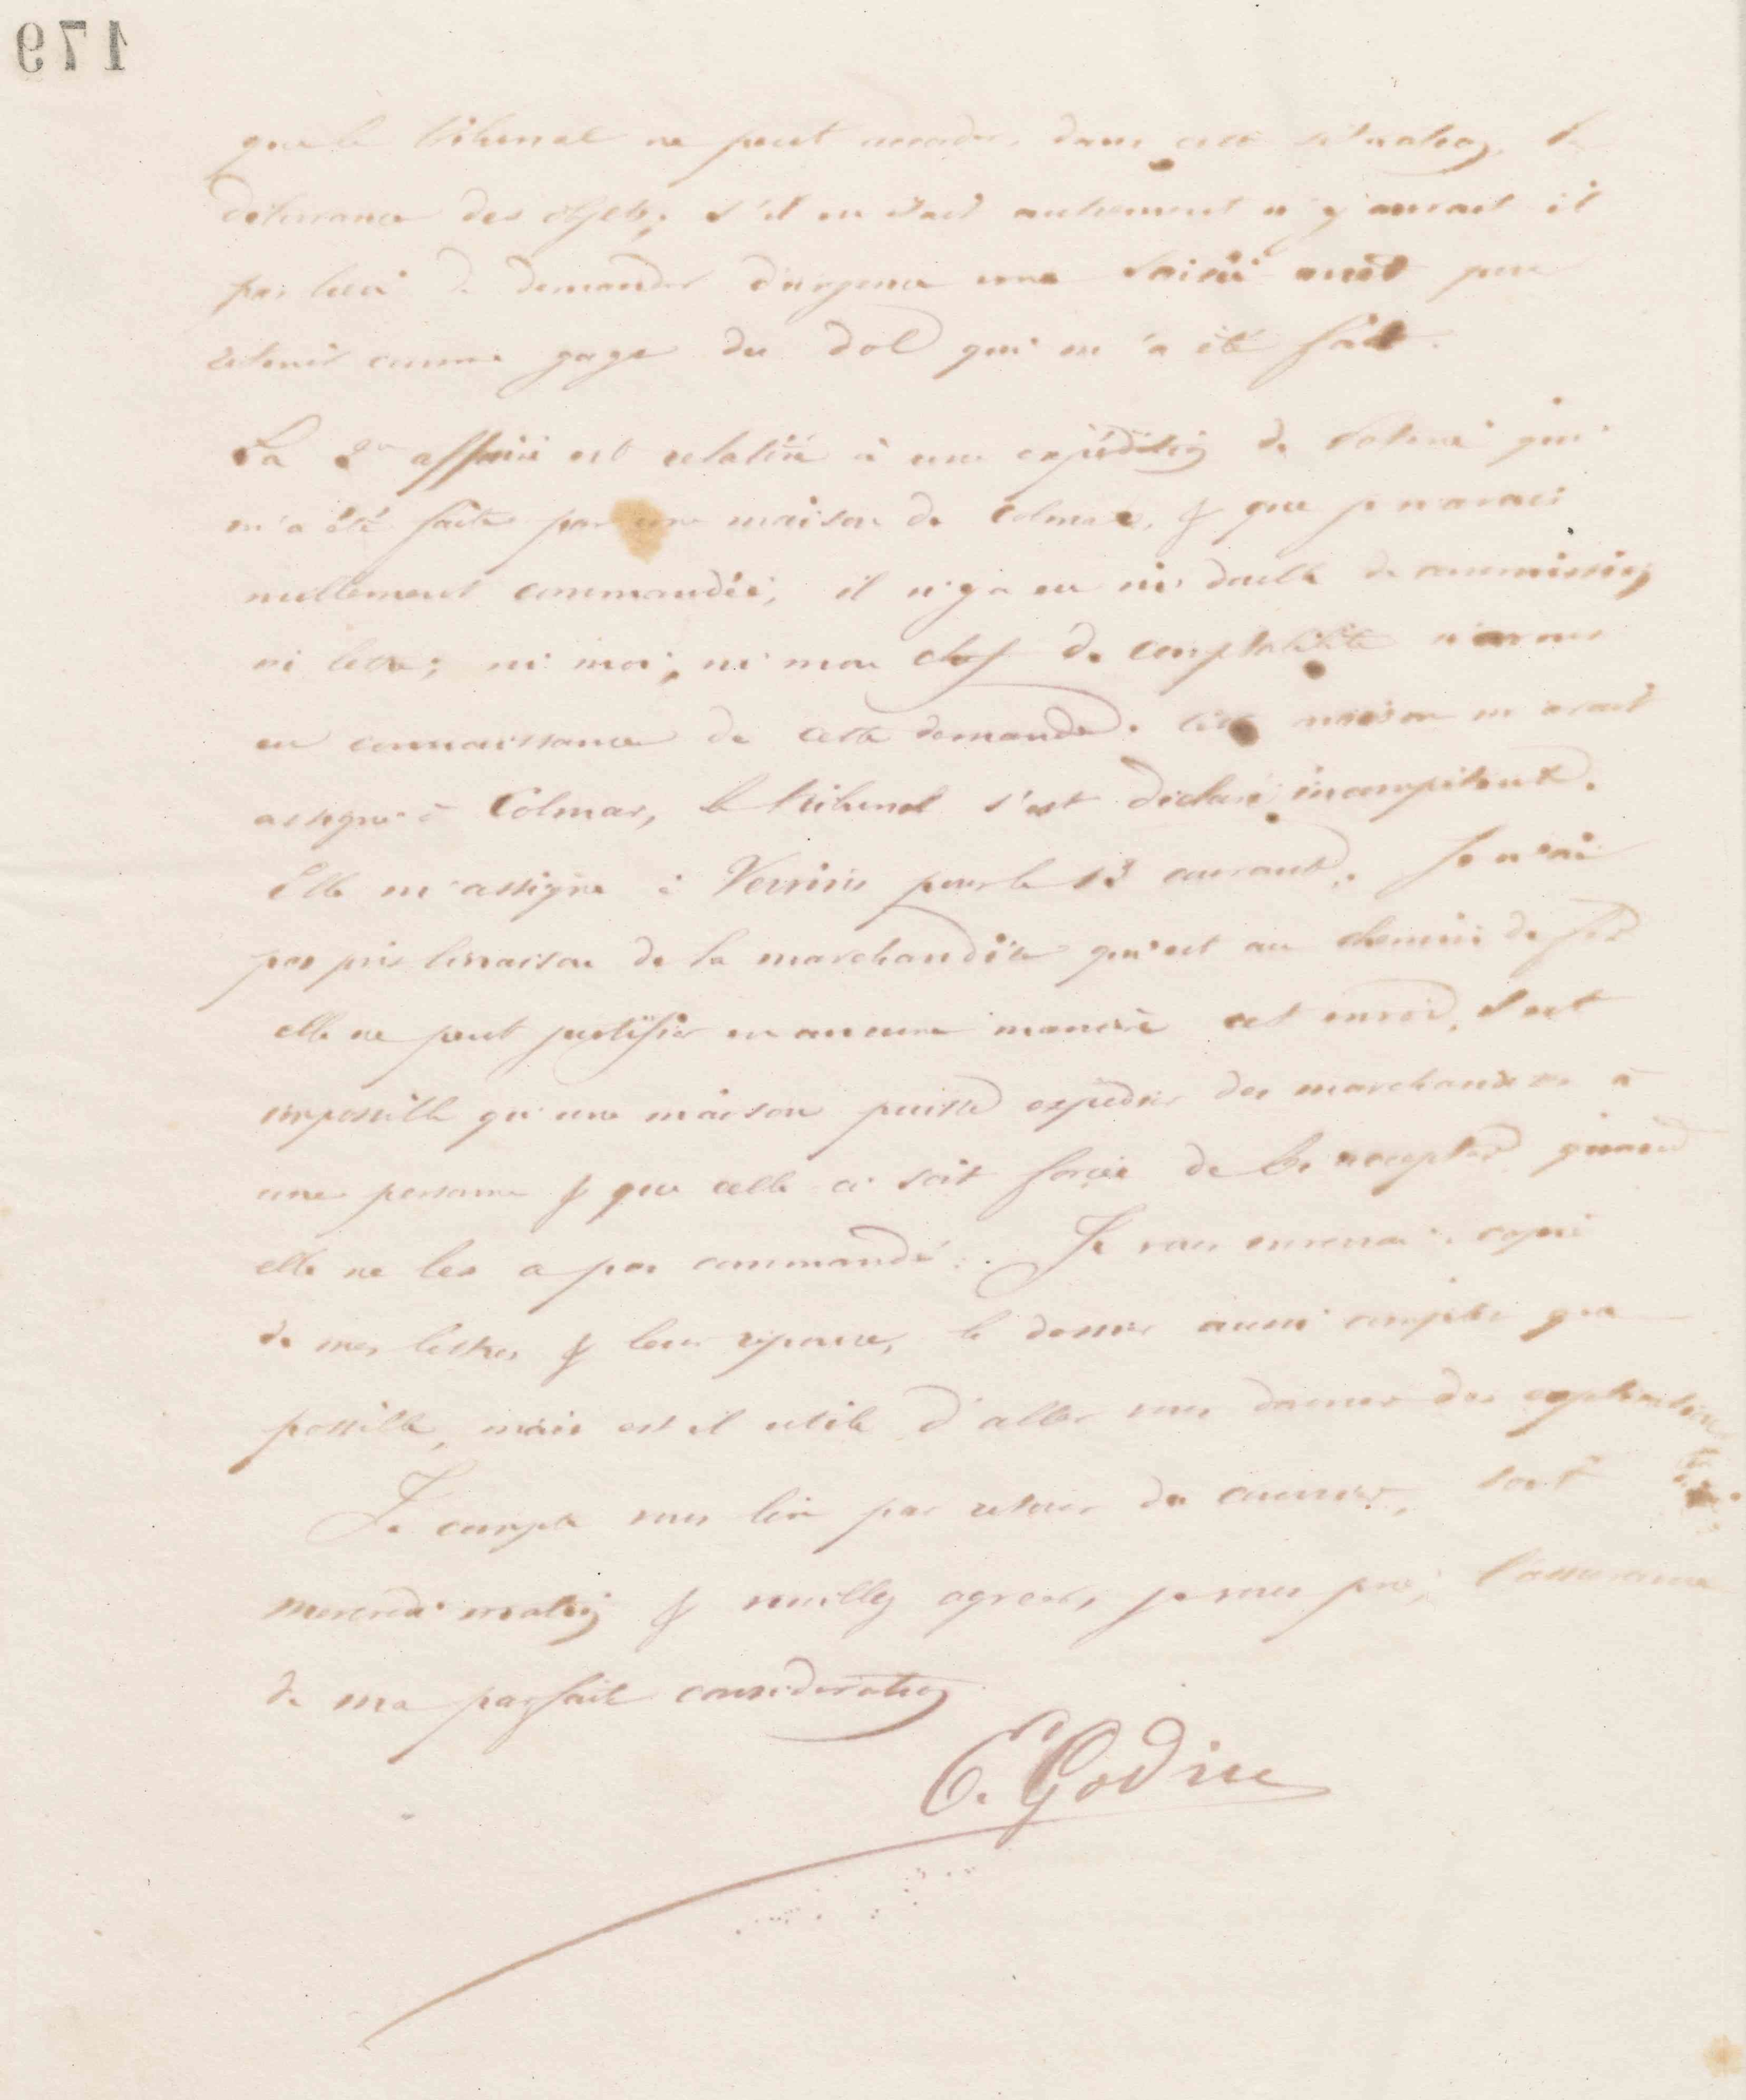 179
que le tribunal ne peut accorder dans cette situation la
délivrance des objets; s'il en était autrement n'y aurait il
pas lieu de demander d'urgence une saisie arrêt pour
retenir comme gage du dol qui m'a été fait.
La 2e affaire est relative à une expédition de qui
m'a été faite par une maison de Colmar, & que je n'avais
nullement commandée; il n'y a eu ni de commission
ni lettre; ni moi, ni mon chef de comptabilité n'avons
eu connaissance de cette demande. Cette maison m'avait
assigné à Colmar, le tribunal s'est déclaré incompétent.
Elle m'assigne à Vervins pour le 13 courant. Je n'ai
pas pris livraison de la marchandise qui est au chemin de fer
elle ne peut justifier en aucune manière cet envoi, il est
impossible qu'une maison puisse expédier des marchandises à
une personne & que celle ci soit forcée de les accepter quand
elle ne les a pas commandé. Je vous enverrai copie
de mes lettres & leur réponse, le dossier aussi complet que
possible, mais est il utile d'aller vous donner des explications
Je compte vous lire par retour du courrier, soit
mercredi matin & veuillez agréer, je vous prie, l'assurance
de ma parfaite considération
E. Godin